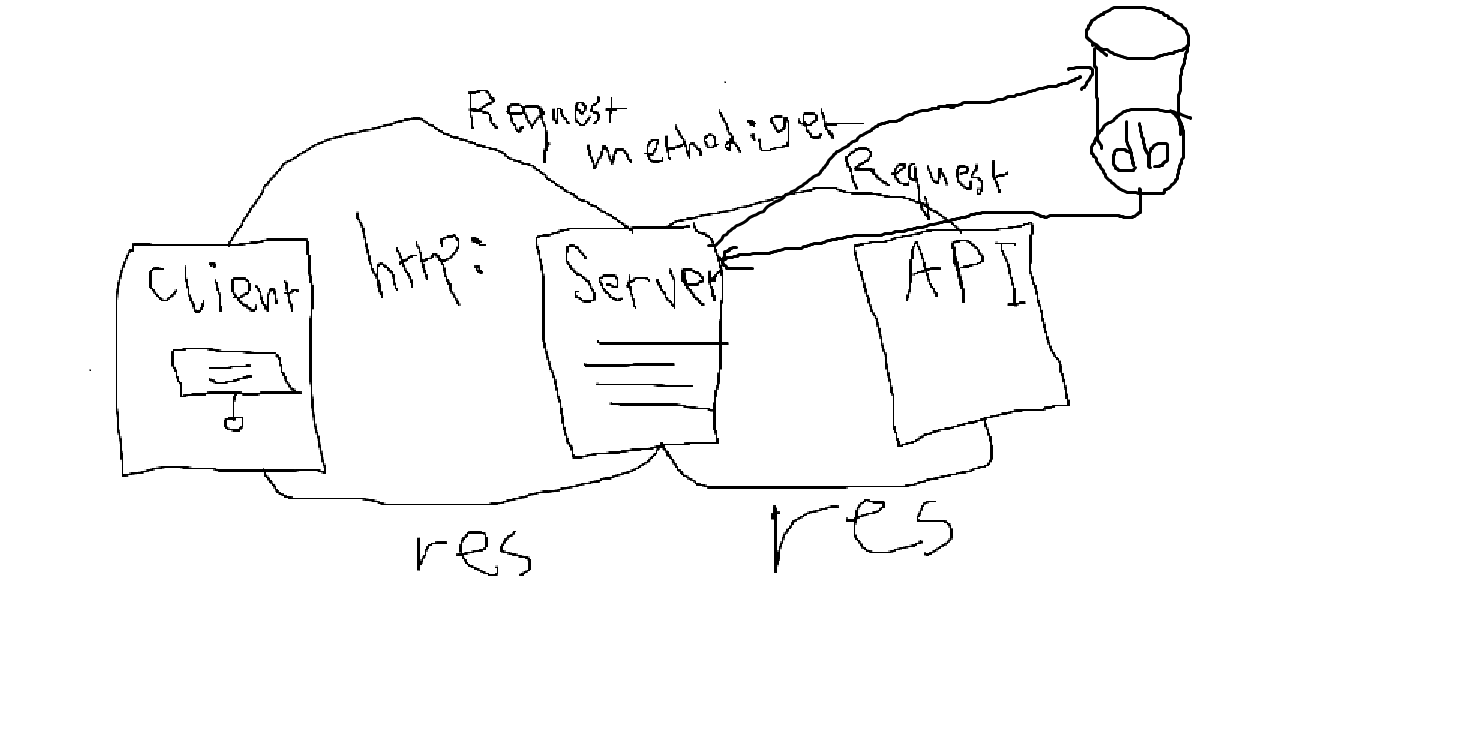 Request
method: get
Request
db
Client
http:
Server
API
res
res